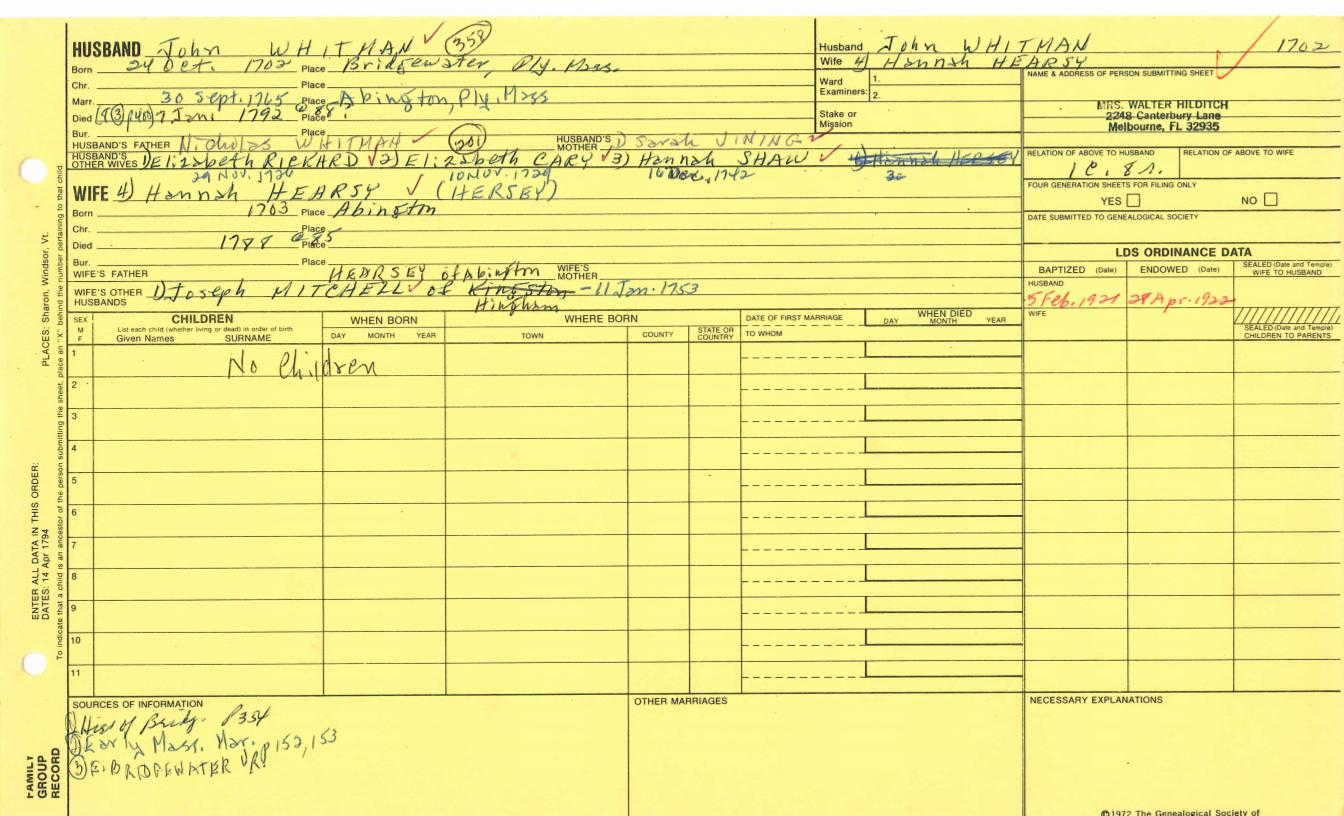 HUSBAND John WHITMAN ✓ (358)
Born 24 Oct. 1702 Place Bridgewater, Ply. Mass.
Chr. Place
Marr. 30 Sept. 1765 Place Abington, Ply. Mass
Died 7 Jan. 1792 Place
Bur. Place
HUSBAND'S FATHER Nicholas WHITMAN ✓ (201) HUSBAND'S MOTHER Sarah VINING ✓
HUSBAND'S OTHER WIVES 1) Elizabeth RICKARD ✓ 2) Elizabeth CARY ✓ 3) Hannah SHAW ✓ Hannah HERSEY
29 Nov. 1726 10 NOV. 1729 Dec. 1742
WIFE 4) Hannah HEARSY ✓ (HERSEY)
Born 1703 Place Abington
Chr. Place
Died 1788 @ 85 Place
Bur. Place
WIFE'S FATHER HEARSEY of Abington WIFE'S MOTHER
WIFE'S OTHER HUSBANDS 1) Joseph MITCHELL ✓ of Kingston - 11 Jan. 1753
Hingham
Husband John WHITMAN 1702
Wife 4) Hannah HEARSY
Ward Examiners: 1.
2.
Stake or Mission
NAME & ADDRESS OF PERSON SUBMITTING SHEET ✓
MRS. WALTER HILDITCH
2248 Canterbury Lane
Melbourne, FL 32935
RELATION OF ABOVE TO HUSBAND RELATION OF ABOVE TO WIFE
1c. 8r.
FOUR GENERATION SHEETS FOR FILING ONLY
YES NO
DATE SUBMITTED TO GENEALOGICAL SOCIETY
LDS ORDINANCE DATA
BAPTIZED (Date) ENDOWED (Date) SEALED (Date and Temple) WIFE TO HUSBAND
HUSBAND
5 Feb. 1921 28 Apr. 1922
WIFE
SEALED (Date and Temple) CHILDREN TO PARENTS
SEX M F CHILDREN WHEN BORN WHERE BORN DATE OF FIRST MARRIAGE WHEN DIED
List each child (whether living or dead) in order of birth
Given Names SURNAME DAY MONTH YEAR TOWN COUNTY STATE OR COUNTRY TO WHOM DAY MONTH YEAR
1 No Children
2
3
4
5
6
7
8
9
10
11
SOURCES OF INFORMATION
1) Hist of Bridg. P354
2) Early Mass. Mar. p 152, 153
3) E. BRIDGEWATER VR
OTHER MARRIAGES
NECESSARY EXPLANATIONS
©1972 The Genealogical Society of
PLACES: Sharon, Windsor, Vt.
ENTER ALL DATA IN THIS ORDER:
DATES: 14 Apr 1794
To indicate that a child is an ancestor of the person submitting the sheet, place an "X" behind the number pertaining to that child
FAMILY GROUP RECORD